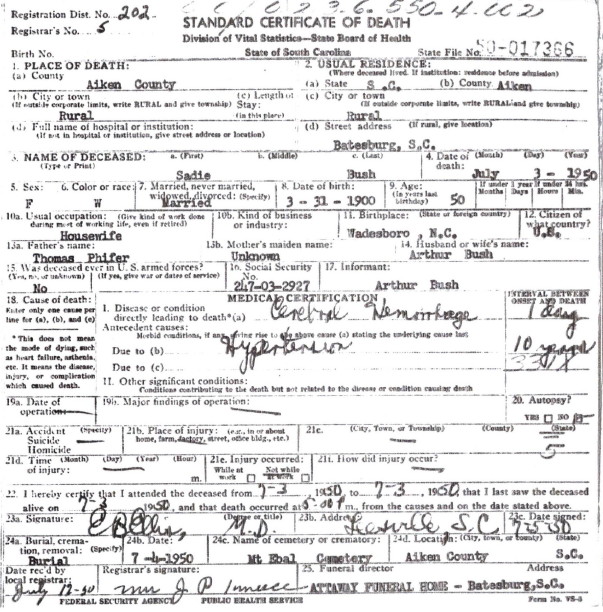 Registration Dist. No. 202
Registrar's No. 5
STANDARD CERTIFICATE OF DEATH
Division of Vital Statistics—State Board of Health
Birth No. State of South Carolina State File No. 50-017366
1. PLACE OF DEATH: 2. USUAL RESIDENCE:
(Where deceased lived. If institution: residence before admission)
(a) County Aiken County (a) State S.C. (b) County Aiken
(b) City or town (c) Length of Stay: (c) City or town
(If outside corporate limits, write RURAL and give township) (in this place) (If outside corporate limits, write RURAL and give township)
Rural Rural
(d) Full name of hospital or institution: (d) Street address (If rural, give location)
(If not in hospital or institution, give street address or location)
Batesburg, S.C.
3. NAME OF DECEASED: a. (First) b. (Middle) c. (Last) 4. Date of death: (Month) (Day) (Year)
(Type or Print) Sadie Bush July 3 - 1950
5. Sex: 6. Color or race: 7. Married, never married, widowed, divorced: (Specify) 8. Date of birth: 9. Age: (In years last birthday) If under 1 year Months Days If under 24 hrs. Hours Min.
F W Married 3 - 31 - 1900 50
10a. Usual occupation: (Give kind of work done during most of working life, even if retired) 10b. Kind of business or industry: 11. Birthplace: (State or foreign country) 12. Citizen of what country?
Housewife Wadesboro, N.C. U.S.
13a. Father's name: 13b. Mother's maiden name: 14. Husband or wife's name:
Thomas Phifer Unknown Arthur Bush
15. Was deceased ever in U.S. armed forces? 16. Social Security No. 17. Informant:
(Yes, no, or unknown) (If yes, give war or dates of service)
No 247-03-2927 Arthur Bush
18. Cause of death: MEDICAL CERTIFICATION INTERVAL BETWEEN ONSET AND DEATH
Enter only one cause per line for (a), (b), and (c)
I. Disease or condition directly leading to death*(a) Cerebral Hemorrhage 1 day
Antecedent causes:
Morbid conditions, if any, giving rise to the above cause (a) stating the underlying cause last
* This does not mean the mode of dying, such as heart failure, asthenia, etc. It means the disease, injury, or complication which caused death.
Due to (b) Hypertension 10 years
Due to (c) 331X
II. Other significant conditions:
Conditions contributing to the death but not related to the disease or condition causing death
19a. Date of operation— 19b. Major findings of operation: 20. Autopsy?
YES NO
21a. Accident (Specify) Suicide Homicide 21b. Place of injury: (e.g., in or about home, farm, factory, street, office bldg., etc.) 21c. (City, Town, or Township) (County) (State)
5
21d. Time (Month) (Day) (Year) (Hour) of injury: m. 21e. Injury occurred: While at work Not while at work 21f. How did injury occur?
22. I hereby certify that I attended the deceased from 7-3 1950, to 7-3, 1950, that I last saw the deceased
alive on 7-3 1950, and that death occurred at m., from the causes and on the date stated above.
23a. Signature: (Degree or title) 23b. Address 23c. Date signed:
M.D. S.C.
24a. Burial, cremation, removal: (Specify) 24b. Date: 24c. Name of cemetery or crematory: 24d. Location: (City, town, or county) (State)
Burial 7-4-1950 Mt Ebal Cemetery Aiken County S.C.
Date rec'd by local registrar: Registrar's signature: 25. Funeral director Address
ATTAWAY FUNERAL HOME - Batesburg, S.C.
FEDERAL SECURITY AGENCY PUBLIC HEALTH SERVICE Form No. VS-3